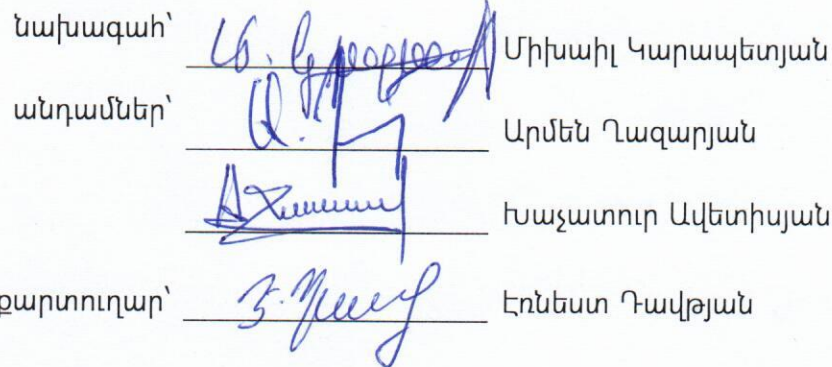 նախագահ՝ Միխաիլ Կարապետյան
անդամներ՝ Արմեն Ղազարյան
Խաչատուր Ավետիսյան
քարտուղար՝ Էռնեստ Դավթյան